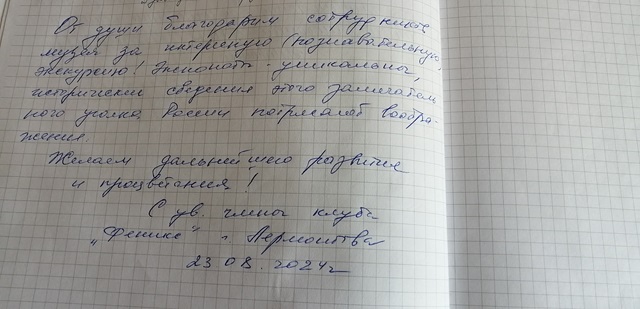 От души благодарим сотрудников
музея за интересную (познавательную)
экскурсию! Экспонаты - уникальны,
исторические сведения этого замечатель
ного уголка России потрясают вообра-
жение.
Желаем дальнейшего развития
и процветания!
С ув. члены клуба
„Феникс" г. Лермонтова
23.08.2024г